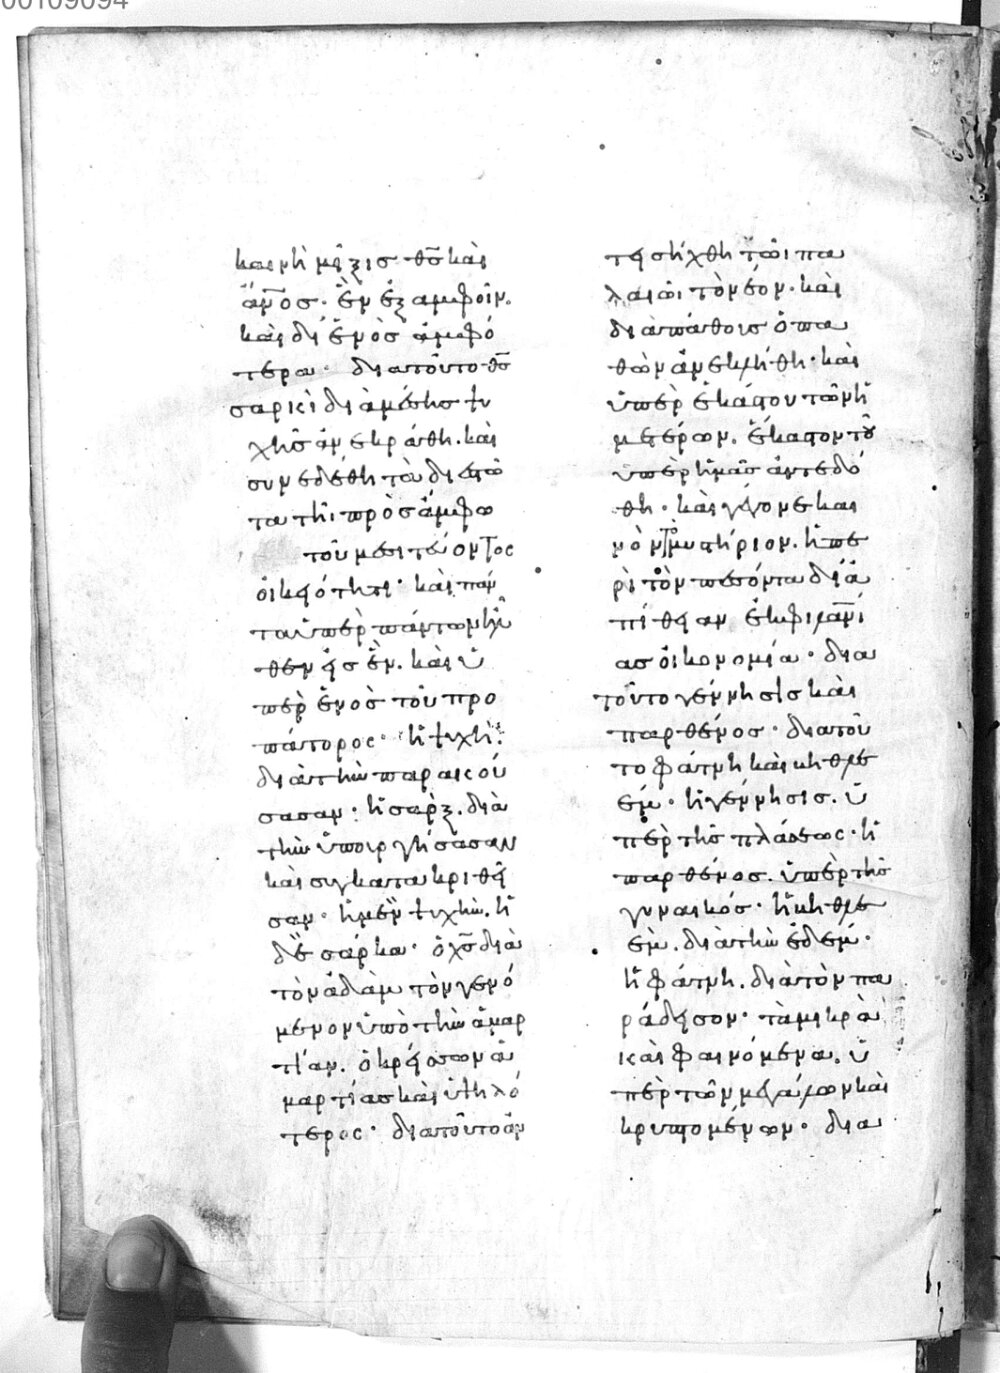 00109094
καινὴ μίξις θ̅ς̅ καὶ
ἄν̅ο̅ς̅· ἓν ἐξ ἀμφοῖν.
καὶ δι' ἑνὸς ἀμφό
τερα· διατοῦτο θ̅ς̅
σαρκὶ διὰ μέσης ψυ
χῆς ἀνεκράθη. καὶ
συνεδέθη τὰ διεστῶ
τα τῆι πρὸς ἄμφω
τοῦ μεσιτεύοντος
οἰκειότητι· καὶ πάν
τα ὑπὲρ πάντων ἦλ
θεν εἰς ἕν. καὶ ὑ
πὲρ ἑνὸς τοῦ προ
πάτορος· ἡ ψυχὴ.
διὰ τὴν παρακού
σασαν· ἡ σαρξ. διὰ
τὴν ὑπουργήσασαν
καὶ συγκατακριθεῖ
σαν· ἡ μὲν ψυχὴν. ἡ
δὲ σάρκα· ὁ χ̅ς̅ διὰ
τὸν ἀδὰμ τὸν γενό
μενον ὑπὸ τὴν ἁμαρ
τίαν. ὁ κρείσσων ἁ
μαρτίας καὶ ὑψηλό
τερος· διατοῦτο ἀν
τεισήχθη τῶι πα
λαιῶι τὸ νέον· καὶ
διὰ πάθους ὁ πα
θὼν ἀνεκλήθη· καὶ
ὑπὲρ ἑκάστου τῶν ἡ
μετέρων. ἕκαστον τοῦ
ὑπὲρ ἡμᾶς ἀντεδό
θη· καὶ γέγονε και
νὸν μυστήριον. ἡ πε
ρὶ τὸν πεσόντα δι' ἀ
πίθειαν ἐκ φιλαν̅ι
ας οἰκονομία· δια
τοῦτο γέννησις καὶ
παρθένος· διατοῦ
το φάτνη καὶ βηθλε
έμ· ἡ γέννησις. ὑ
πὲρ τῆς πλάσεως· ἡ
παρθένος. ὑπὲρ τῆς
γυναικός· ἡ βηθλε
ὲμ. διὰ τὴν ἐδέμ·
ἡ φάτνη. διὰ τὸν πα
ράδεισον· τὰ μικρὰ
καὶ φαινόμενα. ὑ
πὲρ τῶν μεγάλων καὶ
κρυπτομένων· δια